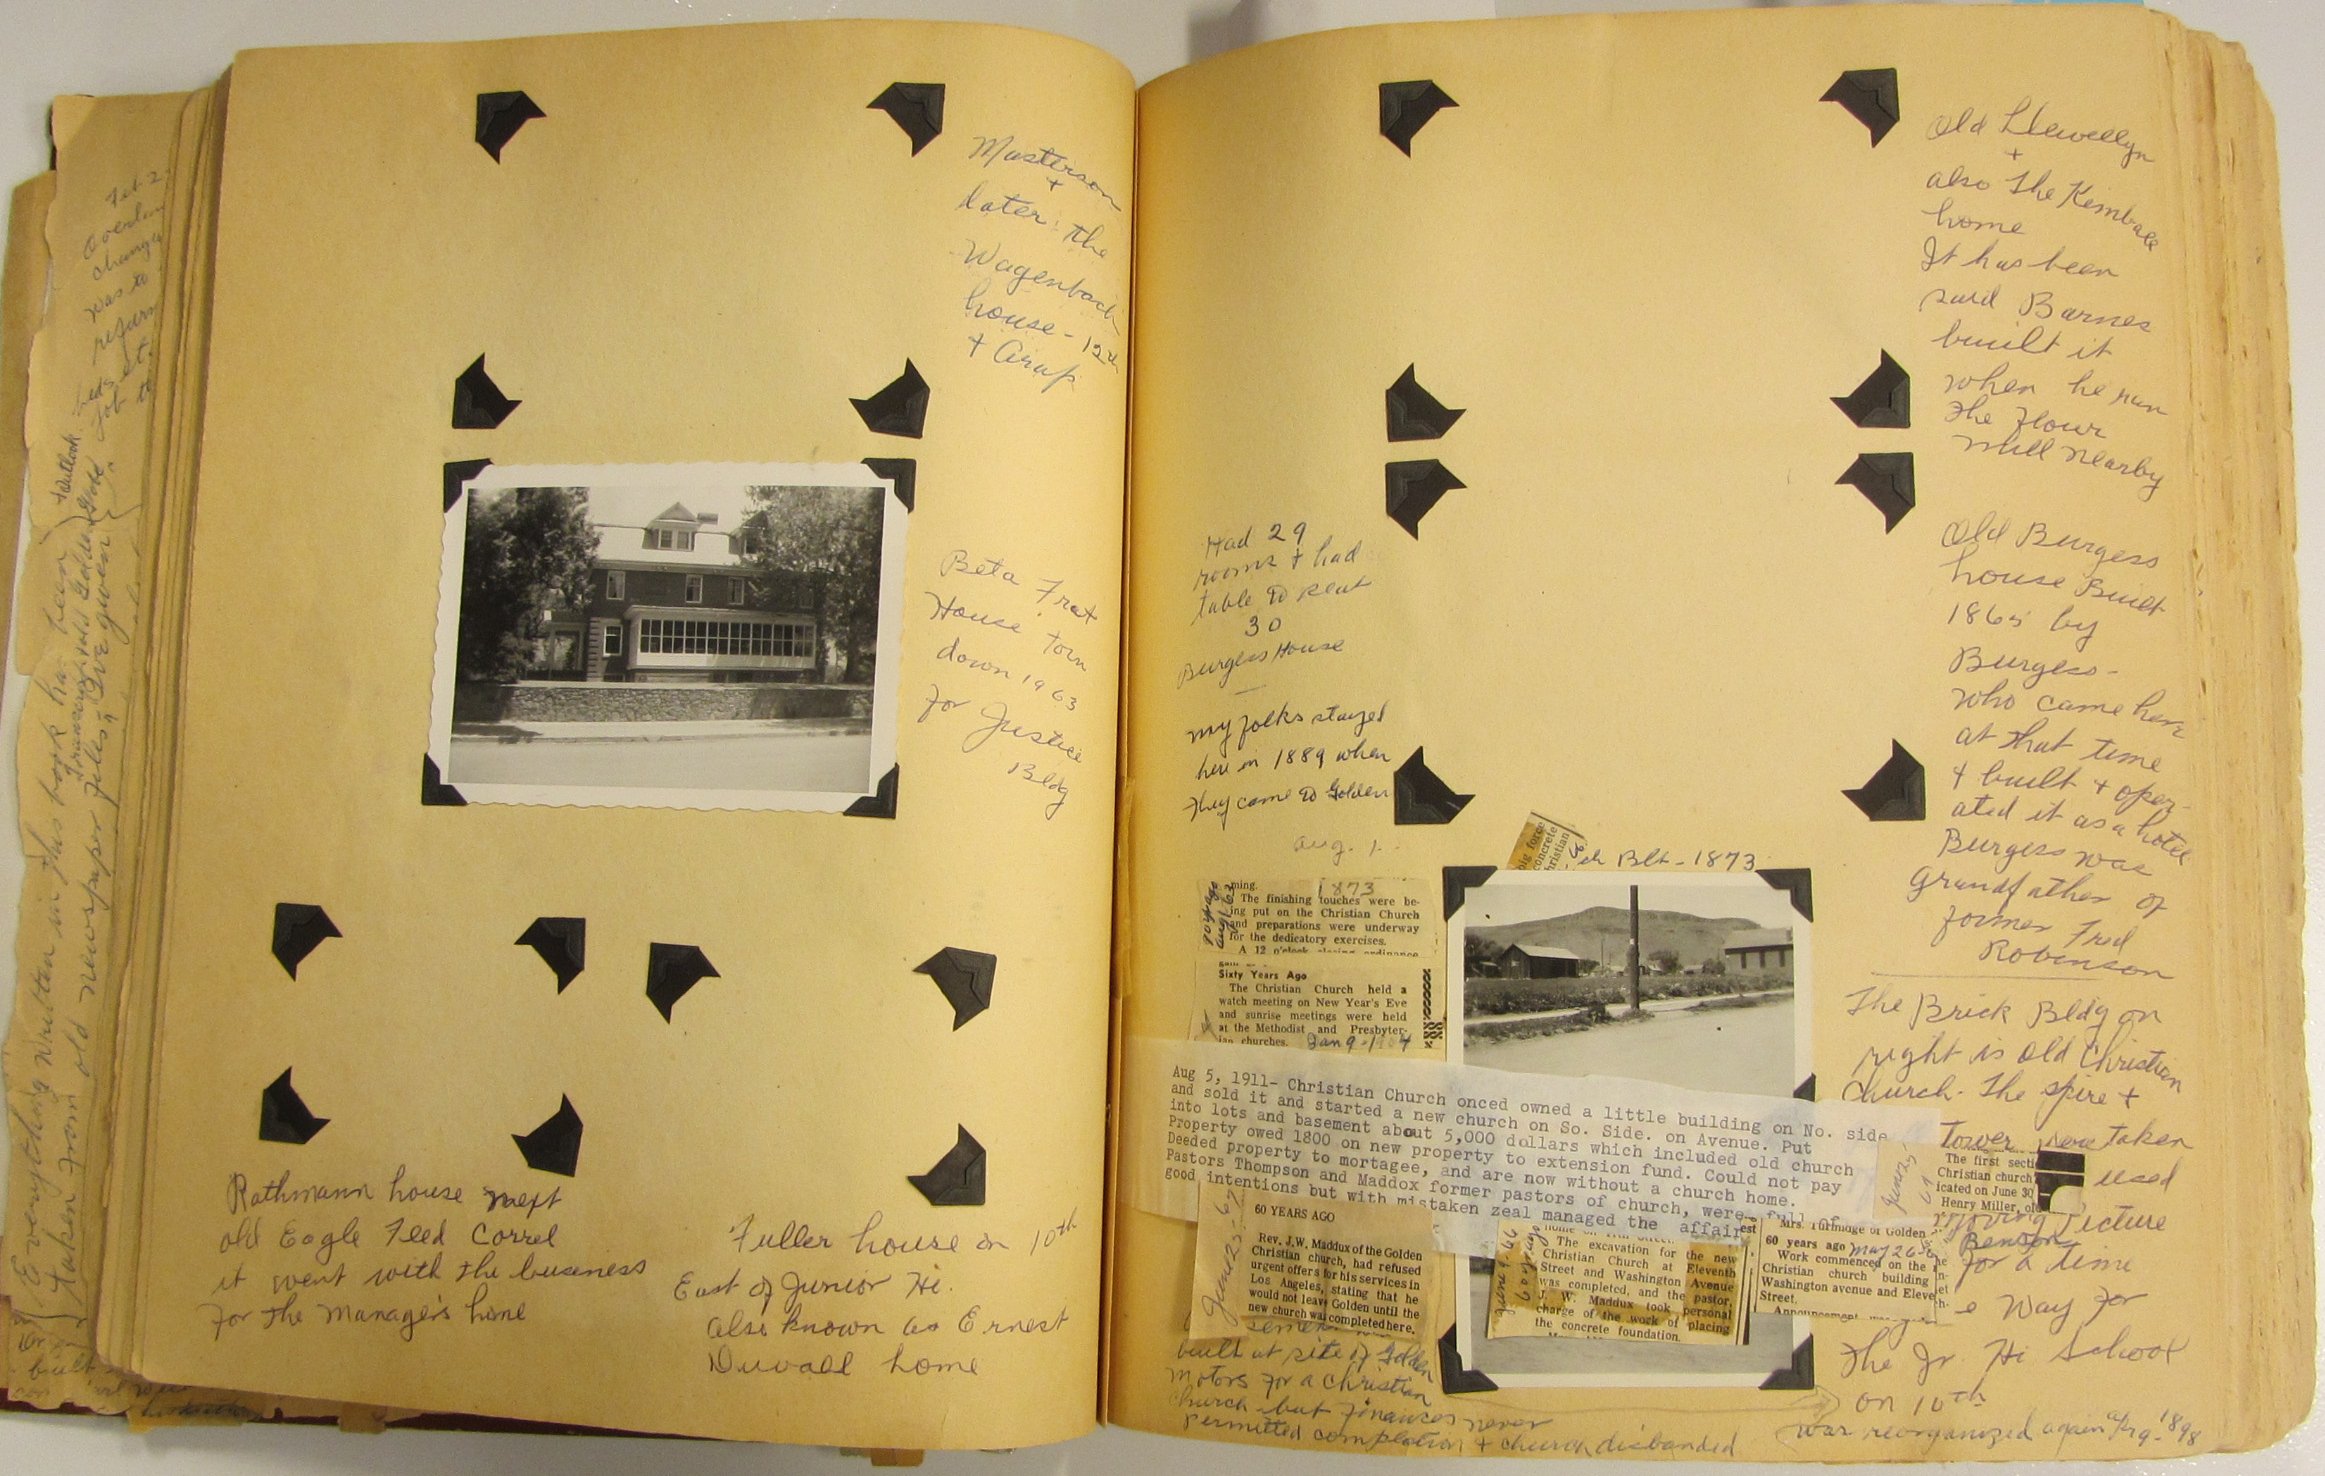 Masterson
+
later the
Wagenbach
house - 12th
+ Arap
Beta Frat
House torn
down 1963
for Justice
Bldg
Rathmann house next
old Eagle Feed Correl
it went with the business
for the Manager's home
Fuller house on 10th
East of Junior Hi.
also known as Ernest
Duvall home
Everything written in this book has been
taken from old newspaper files
Old Llewellyn
+
also the Kimball
home
It has been
said Barnes
built it
when he run
the Flour
Mill nearby
Had 29
rooms + had
table to seat
30
Burgess House
my folks stayed
here in 1889 when
they came to Golden
Aug. 1
Old Burgess
house Built
1865 by
Burgess -
who came here
at that time
+ built + oper-
ated it as a hotel
Burgess was
Grandfather of
former Fred
Robinson
big force
concrete
hristian
ch Blt - 1873
ming. 1873
The finishing touches were be-
ing put on the Christian Church
and preparations were underway
for the dedicatory exercises.
A 12 o'clock closing ordinance
Sixty Years Ago
The Christian Church held a
watch meeting on New Year's Eve
and sunrise meetings were held
at the Methodist and Presbyter-
ian churches. Jan 9-1964
The Brick Bldg on
right is old Christian
Church. The spire +
Tower were taken
used
moving Picture
for a time
e Way for
The Jr. Hi School
on 10th
Aug 5, 1911- Christian Church onced owned a little building on No. side
and sold it and started a new church on So. Side. on Avenue. Put
into lots and basement about 5,000 dollars which included old church
Property owed 1800 on new property to extension fund. Could not pay
Deeded property to mortagee, and are now without a church home.
Pastors Thompson and Maddox former pastors of church, were full of
good intentions but with mistaken zeal managed the affair
June 25-
The first secti
Christian church
icated on June 30
Henry Miller, of
June 25-6
60 YEARS AGO
Rev. J.W. Maddux of the Golden
Christian church, had refused
urgent offers for his services in
Los Angeles, stating that he
would not leave Golden until the
new church was completed here.
June 9-66
60 yrs ago
The excavation for the new
Christian Church at Eleventh
Street and Washington Avenue
was completed, and the pastor,
J. W. Maddux took personal
charge of the work of placing
the concrete foundation.
Mrs. Turmidge of Golden
60 years ago May 26-6
Work commenced on the
Christian church building
Washington avenue and Eleve
Street.
built at site of Golden
Motors for a Christian
Church but Finances never
permitted completion + church disbanded
was reorganized again Apr 9-1898